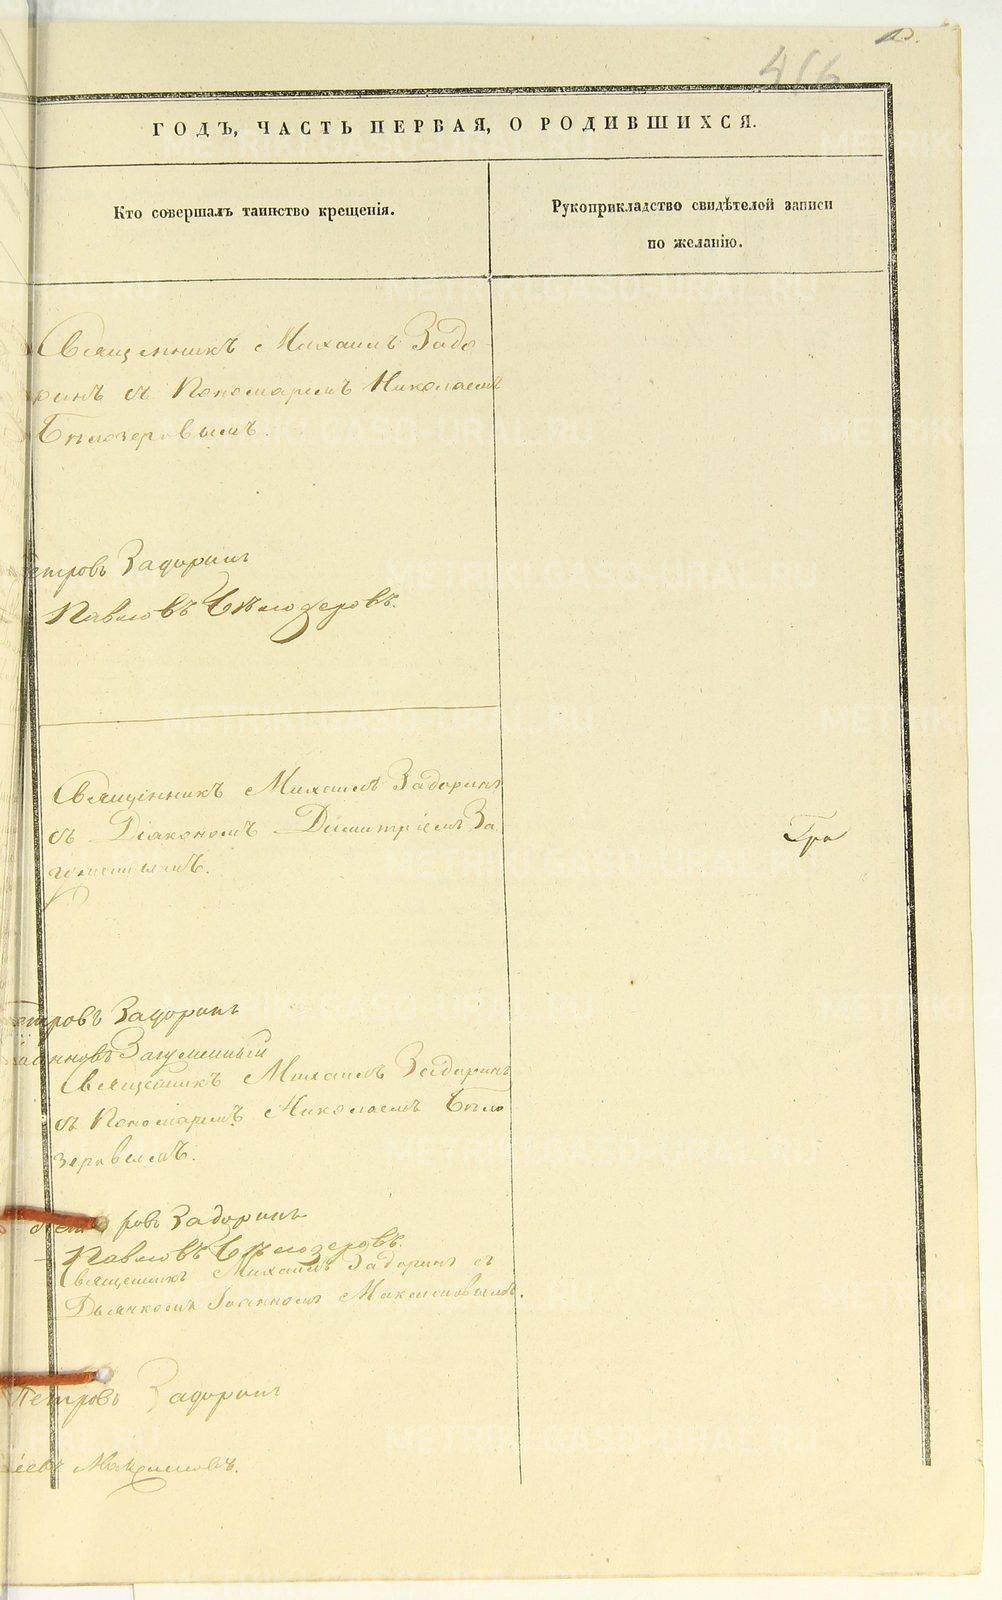 416
ГОДЪ, ЧАСТЬ ПЕРВАЯ, О РОДИВШИХСЯ.
Кто совершалъ таинство крещенія.
Рукоприкладство свидѣтелей записи
по желанію.
Священникъ Михаилъ Задо-
ринъ съ Пономаремъ Николаемъ
Бѣлозеровымъ.
етровъ Задоринъ
Павловъ Бѣлозеровъ.
Священникъ Михаилъ Задоринъ
съ Діакономъ Димитріемъ За
гуменнымъ.
Гра
етровъ Задоринъ
анновъ Загуменный
Священникъ Михаилъ Задоринъ
съ Пономаремъ Николаемъ Бѣло
зеровымъ.
ровъ Задоринъ
Павловъ Бѣлозеровъ.
Священникъ Михаилъ Задоринъ съ
Дьячкомъ Іоанномъ Максимовымъ.
Петровъ Задоринъ
Максимовъ.
METRIKI.GASO-URAL.RU